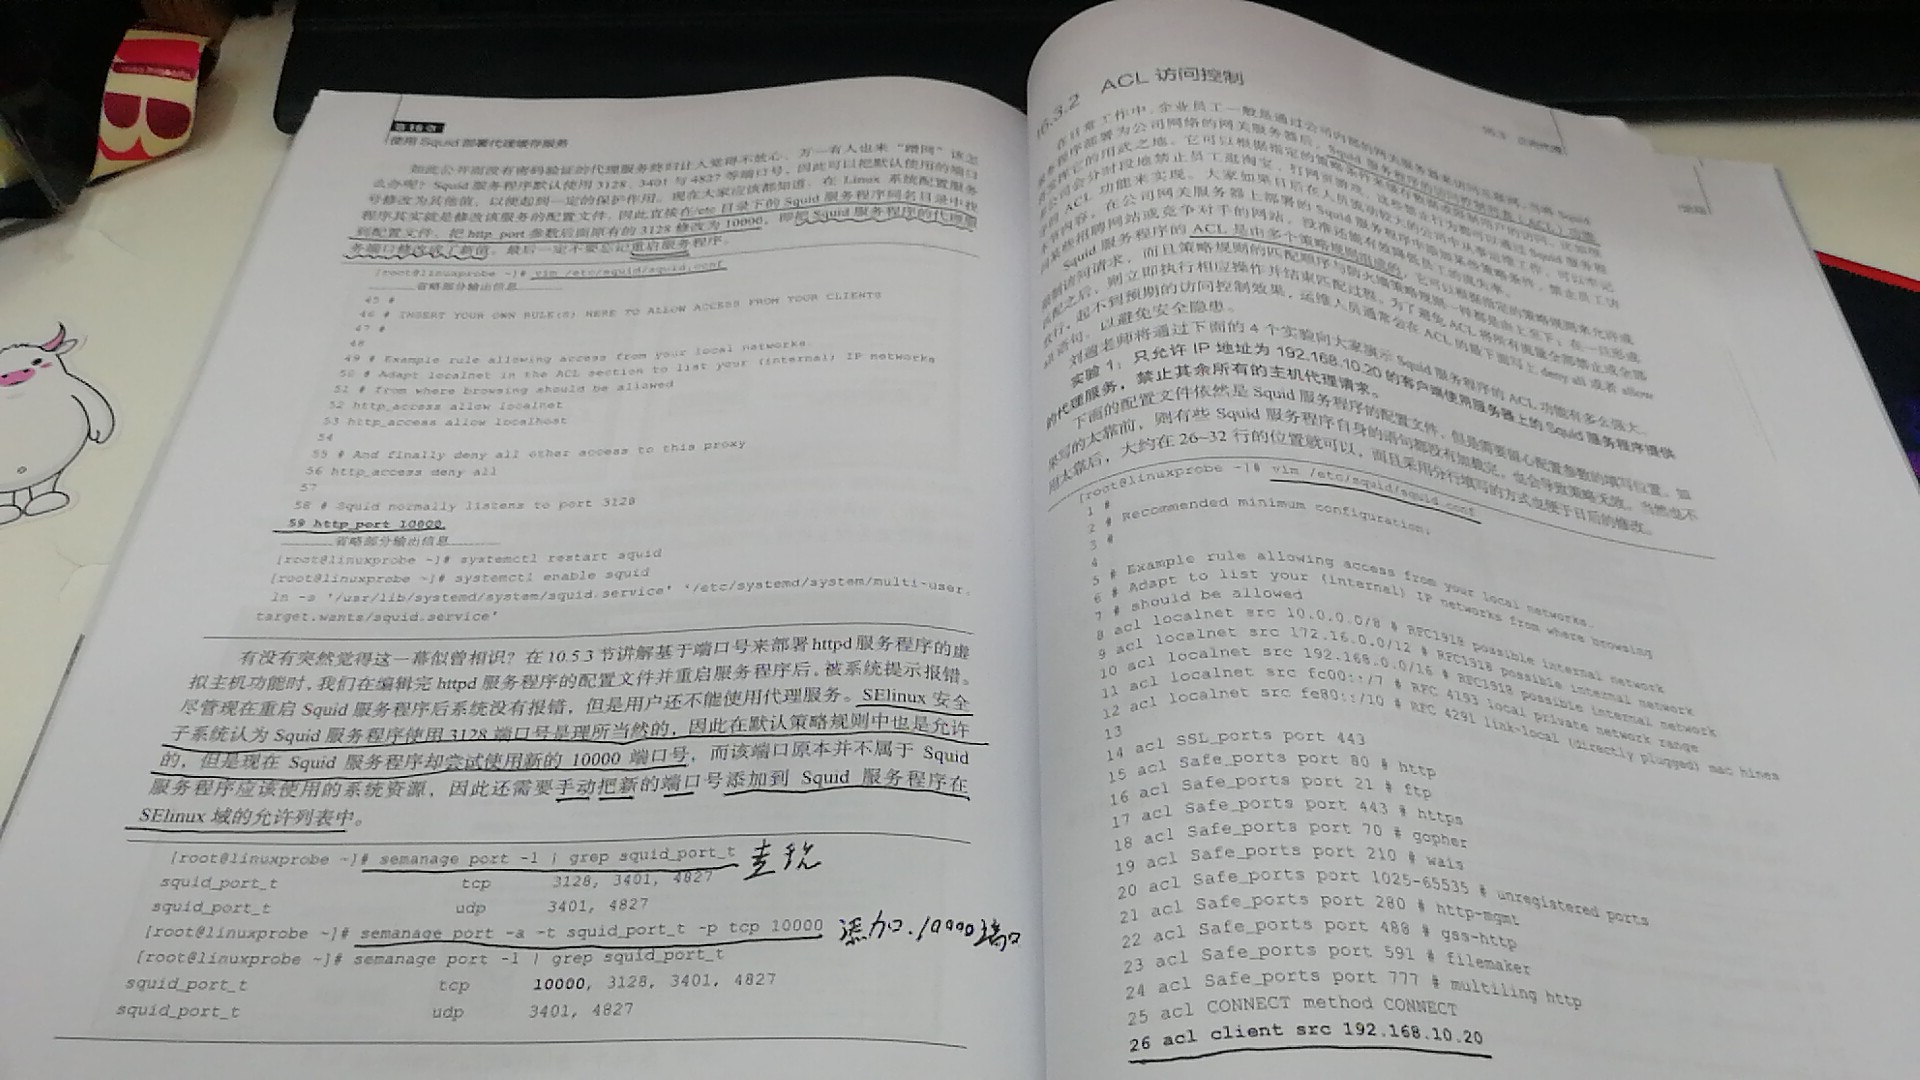 第16章
使用 Squid 部署代理缓存服务
如此公开而没有密码验证的代理服务终归让人觉得不放心，万一有人也来“蹭网”该怎
么办呢？Squid 服务程序默认使用 3128、3401 与 4827 等端口号，因此可以把默认使用的端口
号修改为其他值，以便起到一定的保护作用。现在大家应该都知道，在 Linux 系统配置服务
程序其实就是修改该服务的配置文件，因此直接在/etc 目录下的 Squid 服务程序同名目录中找
到配置文件，把 http_port 参数后面原有的 3128 修改为 10000，即把 Squid 服务程序的代理服
务端口修改成了新值。最后一定不要忘记重启服务程序。
[root@linuxprobe ~]# vim /etc/squid/squid.conf
………………省略部分输出信息………………
45 #
46 # INSERT YOUR OWN RULE(S) HERE TO ALLOW ACCESS FROM YOUR CLIENTS
47 #
48
49 # Example rule allowing access from your local networks.
50 # Adapt localnet in the ACL section to list your (internal) IP networks
51 # from where browsing should be allowed
52 http_access allow localnet
53 http_access allow localhost
54
55 # And finally deny all other access to this proxy
56 http_access deny all
57
58 # Squid normally listens to port 3128
59 http_port 10000
………………省略部分输出信息………………
[root@linuxprobe ~]# systemctl restart squid
[root@linuxprobe ~]# systemctl enable squid
ln -s '/usr/lib/systemd/system/squid.service' '/etc/systemd/system/multi-user.
target.wants/squid.service'
有没有突然觉得这一幕似曾相识？在 10.5.3 节讲解基于端口号来部署 httpd 服务程序的虚
拟主机功能时，我们在编辑完 httpd 服务程序的配置文件并重启服务程序后，被系统提示报错。
尽管现在重启 Squid 服务程序后系统没有报错，但是用户还不能使用代理服务。SElinux 安全
子系统认为 Squid 服务程序使用 3128 端口号是理所当然的，因此在默认策略规则中也是允许
的，但是现在 Squid 服务程序却尝试使用新的 10000 端口号，而该端口原本并不属于 Squid
服务程序应该使用的系统资源，因此还需要手动把新的端口号添加到 Squid 服务程序在
SElinux 域的允许列表中。
[root@linuxprobe ~]# semanage port -l | grep squid_port_t
squid_port_t tcp 3128, 3401, 4827
squid_port_t udp 3401, 4827
[root@linuxprobe ~]# semanage port -a -t squid_port_t -p tcp 10000 添加.10000端口
[root@linuxprobe ~]# semanage port -l | grep squid_port_t
squid_port_t tcp 10000, 3128, 3401, 4827
squid_port_t udp 3401, 4827
16.3.2 ACL 访问控制
在日常工作中，企业员工一般是通过公司内部的网关服务器来访问互联网，当将 Squid
服务程序部署为公司网络的网关服务器后，Squid 服务程序的访问控制列表（ACL）功能
Squid 服务程序的 ACL 是由多个策略规则组成的，它可以根据指定的策略规则来允许或
限制访问请求，而且策略规则的匹配顺序与防火墙策略规则一样都是由上至下；在一旦形成
匹配之后，则立即执行相应操作并结束匹配过程。为了避免 ACL 将所有流量全部禁止或全部
放行，起不到预期的访问控制效果，运维人员通常会在 ACL 的最下面写上 deny all 或者 allow
all 语句，以避免安全隐患。
刘遄老师将通过下面的 4 个实验向大家演示 Squid 服务程序的 ACL 功能有多么强大。
实验 1：只允许 IP 地址为 192.168.10.20 的客户端使用服务器上的 Squid 服务程序提供
的代理服务，禁止其余所有的主机代理请求。
下面的配置文件依然是 Squid 服务程序的配置文件，但是需要留心配置参数的填写位置。如
果写的太靠前，则有些 Squid 服务程序自身的语句都没有加载完，也会导致策略无效。当然也不
用太靠后，大约在 26~32 行的位置就可以，而且采用分行填写的方式也便于日后的修改。
[root@linuxprobe ~]# vim /etc/squid/squid.conf
1 #
2 # Recommended minimum configuration:
3 #
4
5 # Example rule allowing access from your local networks.
6 # Adapt to list your (internal) IP networks from where browsing
7 # should be allowed
8 acl localnet src 10.0.0.0/8 # RFC1918 possible internal network
9 acl localnet src 172.16.0.0/12 # RFC1918 possible internal network
10 acl localnet src 192.168.0.0/16 # RFC1918 possible internal network
11 acl localnet src fc00::/7 # RFC 4193 local private network range
12 acl localnet src fe80::/10 # RFC 4291 link-local (directly plugged) mac hines
13
14 acl SSL_ports port 443
15 acl Safe_ports port 80 # http
16 acl Safe_ports port 21 # ftp
17 acl Safe_ports port 443 # https
18 acl Safe_ports port 70 # gopher
19 acl Safe_ports port 210 # wais
20 acl Safe_ports port 1025-65535 # unregistered ports
21 acl Safe_ports port 280 # http-mgmt
22 acl Safe_ports port 488 # gss-http
23 acl Safe_ports port 591 # filemaker
24 acl Safe_ports port 777 # multiling http
25 acl CONNECT method CONNECT
26 acl client src 192.168.10.20